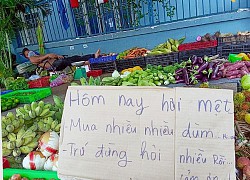 Hôm nay hơi mệt
- Mua nhiều nhiều dùm...
- Trả đúng hỏi nhiều Rồi...
cảm ơn